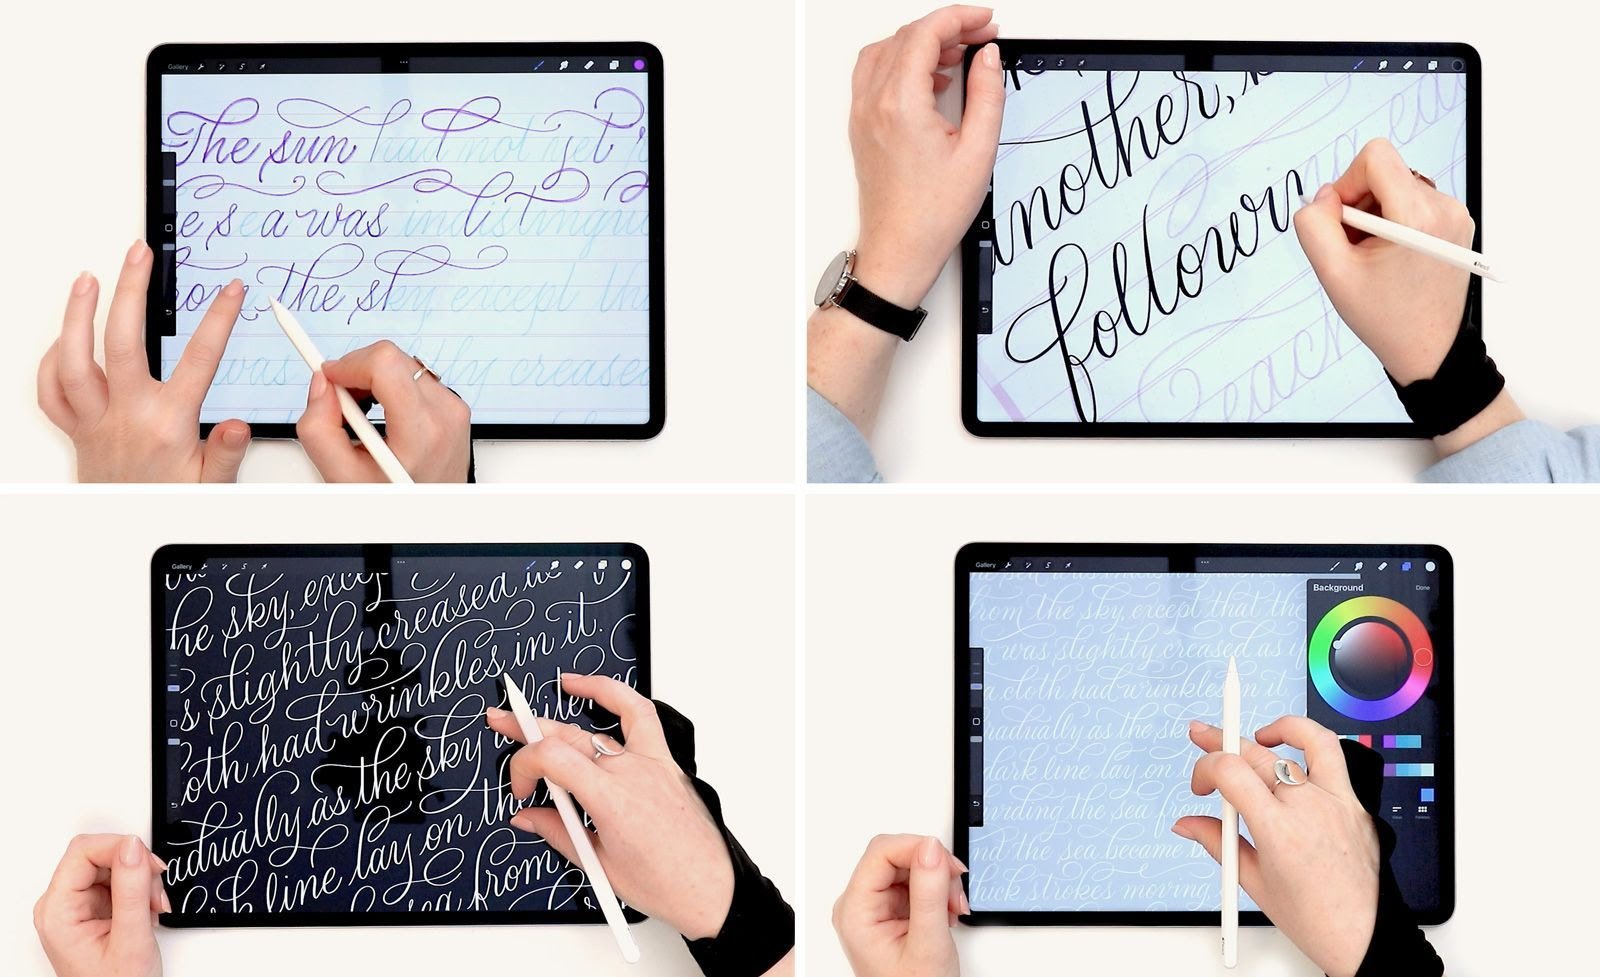 Gallery
The sun had not yet
sea was indistingui
rom the sky except th
was slightly creased
another,
following each
each
Gallery
he sky, excep
s slightly creased as
oth had wrinkles in it.
adually as the sky
line lay on the
sea from
Gallery
Background Done
sea was
from the sky, except that the
was slightly creased as if
a cloth had wrinkles in it
radually as the sky
dark line lay on
the sea from
nd the sea became
thick strokes moving